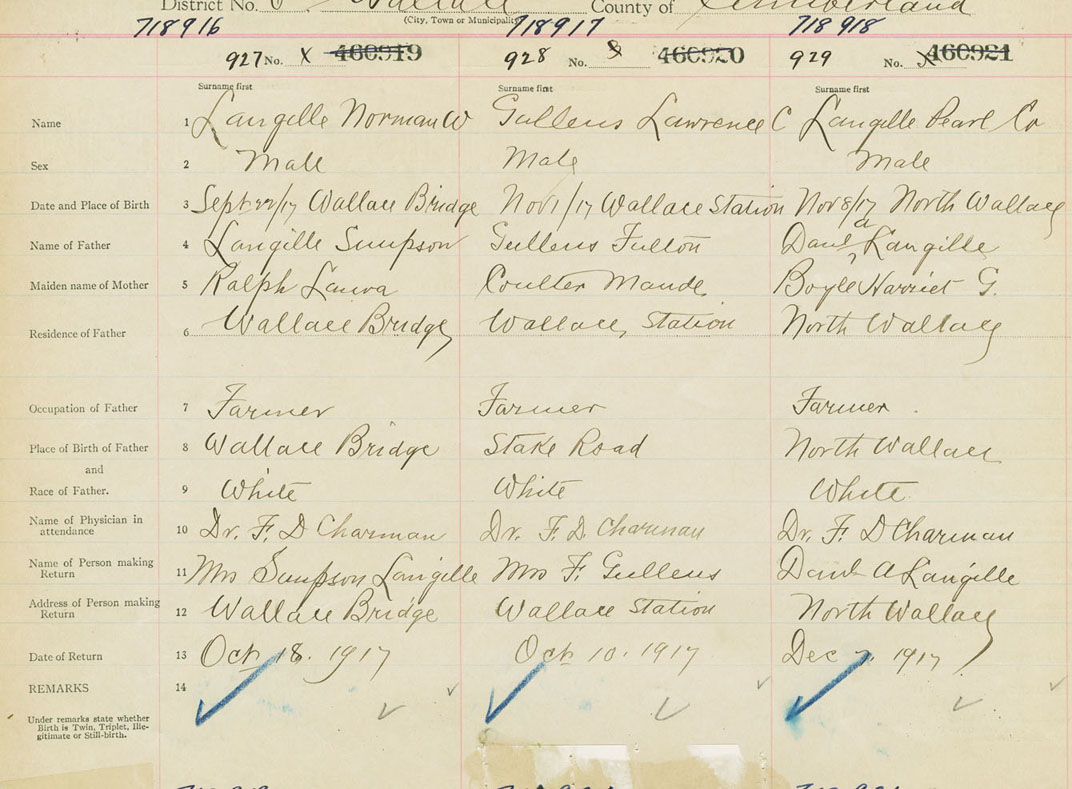 District No. Wallace County of Cumberland
(City, Town or Municipality)
718916 718917 718918
927 No. X 460919 928 No. 8 460920 929 No. X 460921
Surname first Surname first Surname first
Name 1 Langille Norman W Gullens Lawrence C Langille Pearl Co
Sex 2 Male Male Male
Date and Place of Birth 3 Sept 22/17 Wallace Bridge Nov 1/17 Wallace Station Nov 8/17 North Wallace
Name of Father 4 Langille Simpson Gullens Fulton Danl a Langille
Maiden name of Mother 5 Ralph Laura Coulter Maude Boyle Harriet G.
Residence of Father 6 Wallace Bridge Wallace Station North Wallace
Occupation of Father 7 Farmer Farmer Farmer
Place of Birth of Father 8 Wallace Bridge Stake Road North Wallace
and
Race of Father. 9 White White White
Name of Physician in attendance 10 Dr. F. D Charman Dr. F. D. Charman Dr. F. D Charman
Name of Person making Return 11 Mrs Simpson Langille Mrs F. Gullens Danl A Langille
Address of Person making Return 12 Wallace Bridge Wallace Station North Wallace
Date of Return 13 Oct 18. 1917 Oct 10. 1917 Dec 1917
REMARKS 14
Under remarks state whether
Birth is Twin, Triplet, Ille-
gitimate or Still-birth.